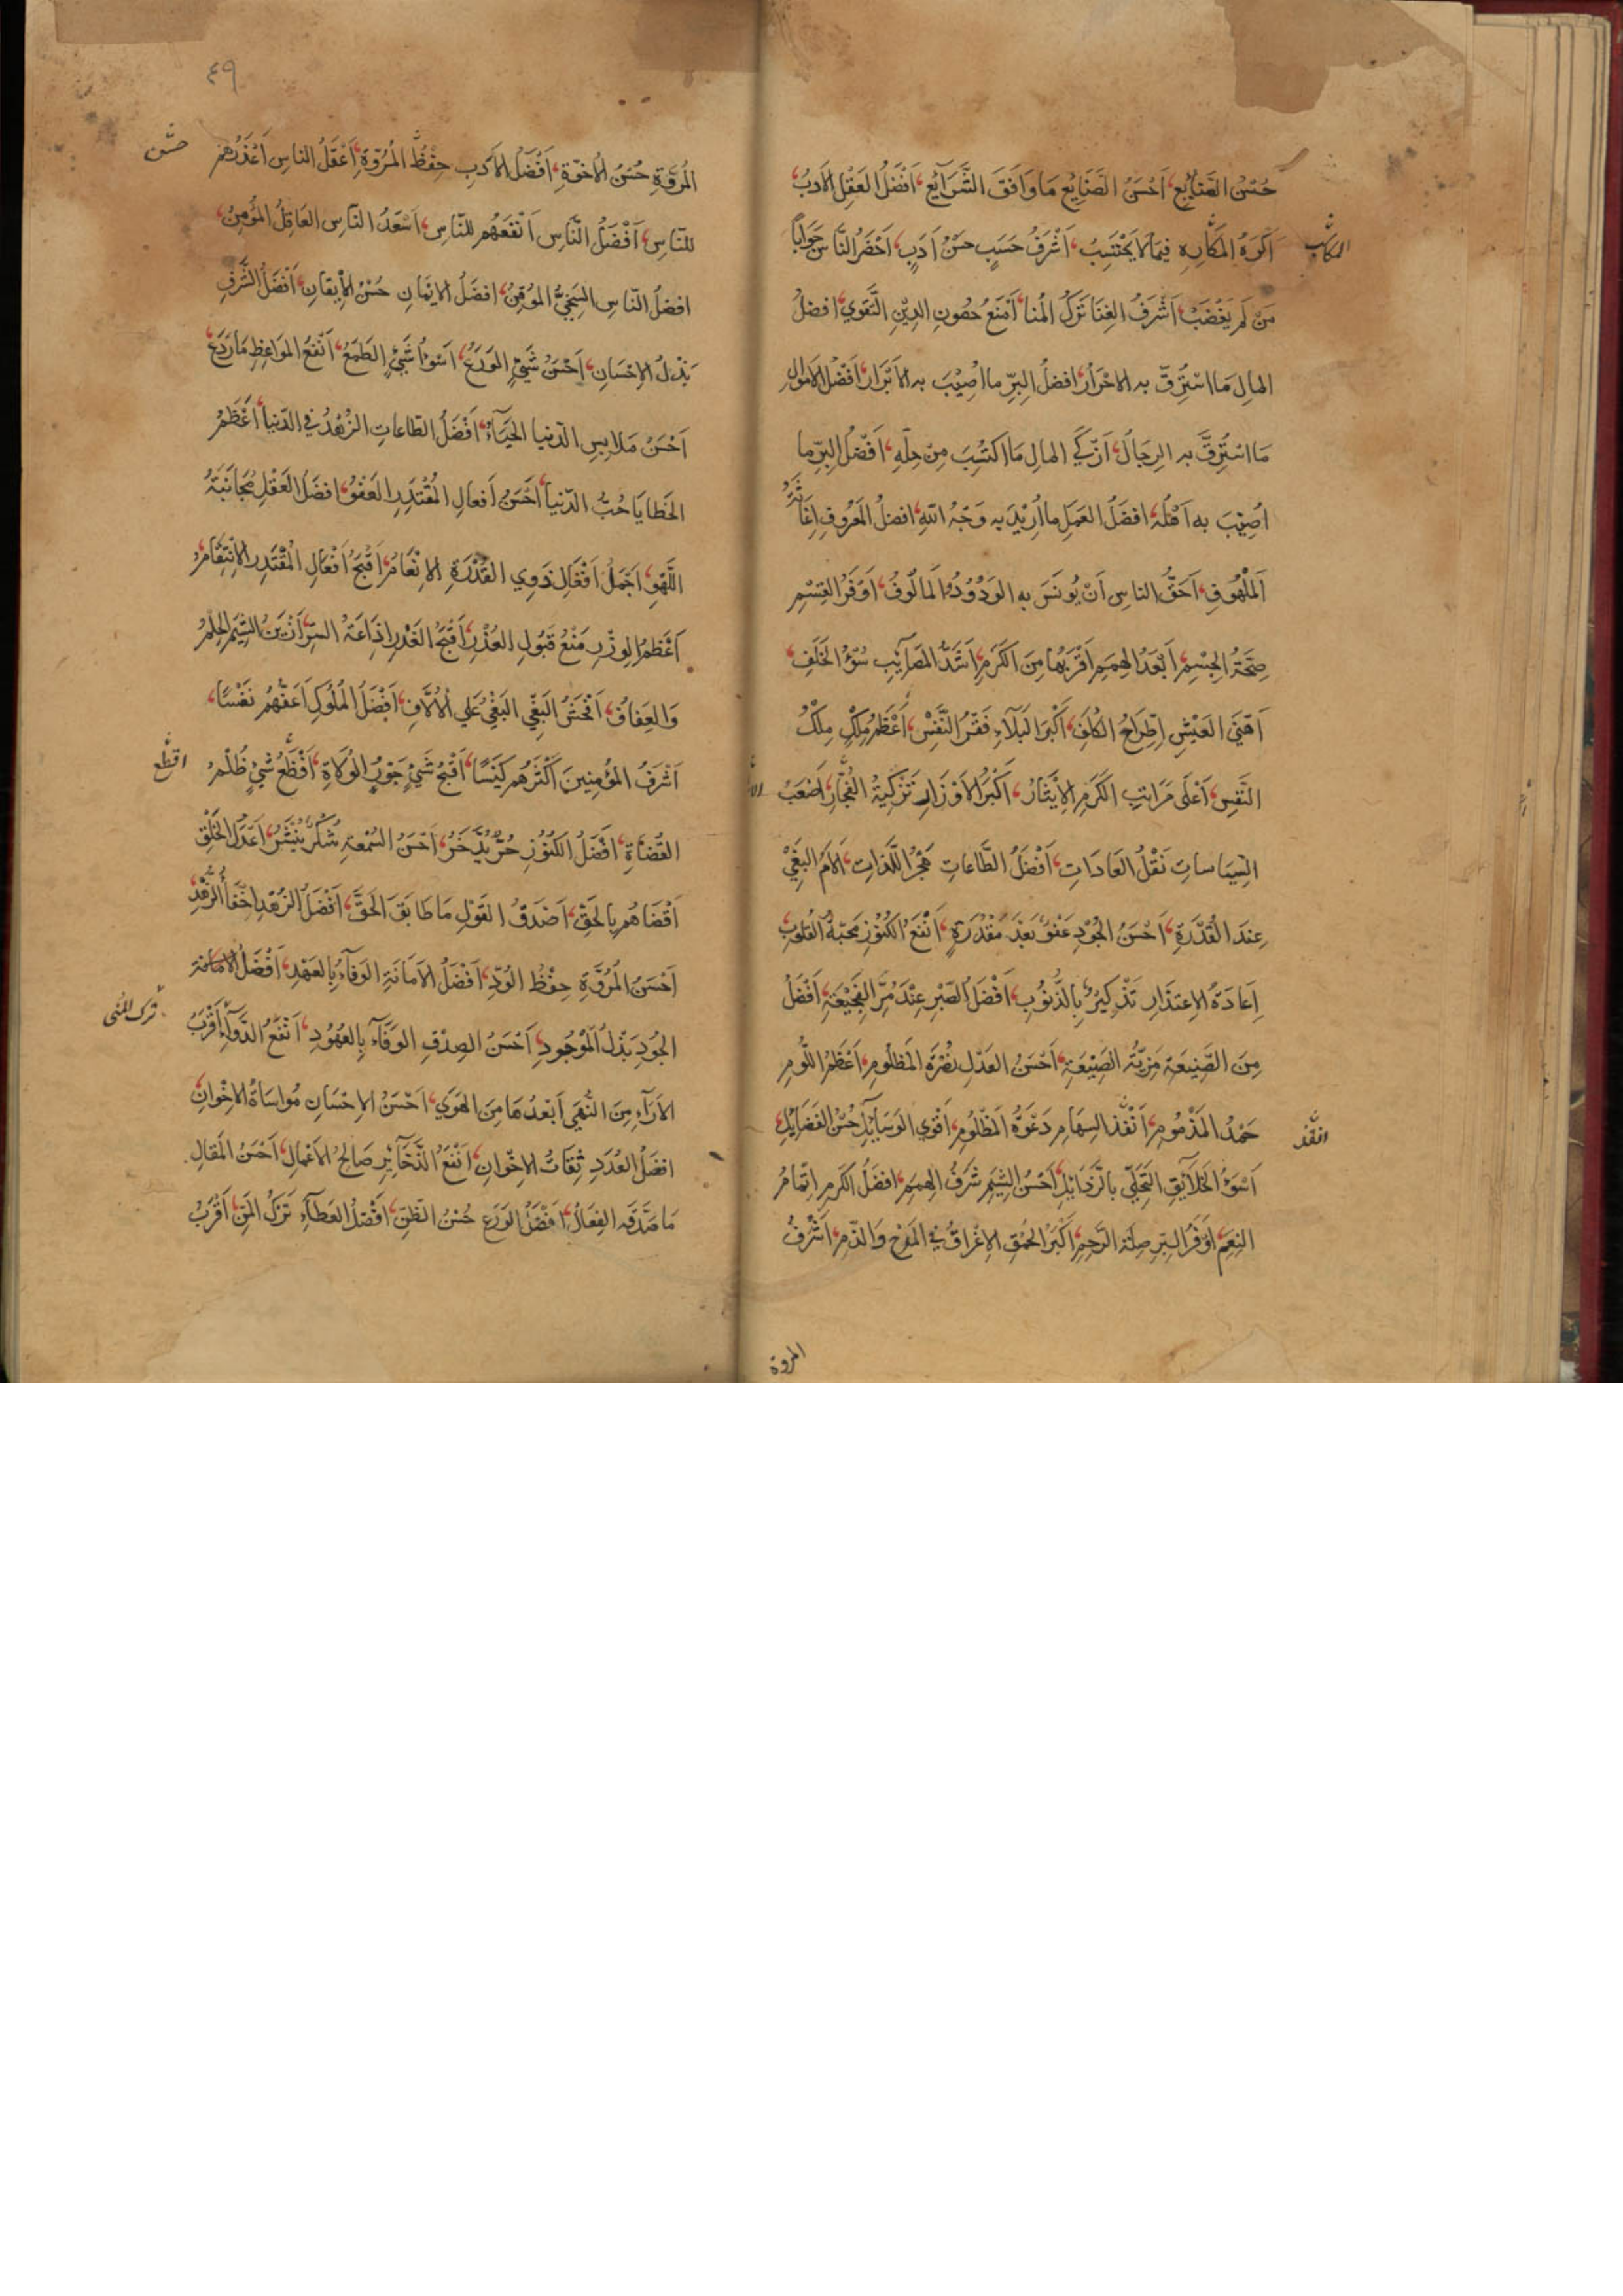 حُسْنُ الصَّنَايِعِ، اَحْسَنُ الصَّنَايِعِ مَا وَافَقَ الشَّرَايِعَ، اَفْضَلُ العَقْلِ الاَدَبُ،
اَكْرَهُ المَكَارِهِ فِيمَا لَا يَحْتَسِبُ، اَشْرَفُ حَسَبٍ حُسْنُ اَدَبٍ، اَحْضَرُ النَّاسِ جَوَابًا
المكاسب
مَنْ لَمْ يَغْضَبْ، اَشْرَفُ الغِنَا تَرْكُ المُنَا، اَمْنَعُ حُصُونِ الدِّيْنِ التَّقْوَي، افضلُ
المالِ مَا اسْتُرِقَّ بِهِ الاحْرَارُ، افضلُ البِرِّ ما اُصِيْبَ بِهِ الاَبْرَارُ، اَفْضَلُ الاَمْوَالِ
مَا اسْتُرِقَّ بِهِ الرِجَالُ، اَزْكَي المالِ مَا اكتُسِبَ مِنْ حِلِّهِ، اَفْضَلُ البِرِّ ما
اُصِيْبَ بِهِ اَهْلُهُ، افضَلُ العَمَلِ ما اُرِيْدَ بِهِ وَجْهُ اللهِ، افضلُ المَعْرُوفِ اِغَاثَةُ
اَلمَلْهُوفِ، اَحَقُّ الناسِ اَنْ يُونَسَ بِهِ الوَدُوْدُ المَالُوفُ، اَوْفَرُ القِسْمِ
صِحَّةُ الجِسْمِ، اَبْعَدُ الهِمَمِ اَقْرَبُهَا مِنَ الكَرَمِ، اَشَدُّ المَصَآئِبِ سُوْءُ الخَلَفِ،
اَهْنَي العَيْشِ اِطِّرَاحُ الكُلَفِ، اَكْبَرُ البَلَاءِ فَقْرُ النَّفْسِ، اَعْظَمُ مِلْكٍ مِلْكُ
النَّفْسِ، اَعْلَى مَرَاتِبِ الكَرَمِ الاِيْثَارُ، اَكْبَرُ الاَوْزَارِ تَزْكِيَةُ الفُجَّارِ، اَصْعَبُ
السِّيَاسَاتِ نَقْلُ العَادَاتِ، اَفْضَلُ الطَّاعَاتِ هَجْرُ اللَّذَّاتِ، اَلْاَمُ البَغْيِ
عِنْدَ القُدْرَةِ، اَحْسَنُ الجُوْدِ عَفْوٌ بَعْدَ مَقْدُرَةٍ، اَنْفَعُ الكُنُوْزِ مَحَبَّةُ القُلُوبِ
اِعَادَةُ الاِعْتِذَارِ تَذْكِيْرٌ بِالذُّنُوْبِ، اَفْضَلُ الصَّبْرِ عِنْدَ مُرِّ الفَجِيْعَةِ، اَفْضَلُ
مِنَ الصَّنِيعَةِ مَزِيَّةُ الصَّنِيْعَةِ، اَحْسَنُ العَدْلِ نُصْرَةُ المَظْلُومِ، اَعْظَمُ اللُّومِ
حَمْدُ المَذْمُومِ، اَنْفَذُ السِّهَامِ دَعْوَةُ المَظْلُومِ، اَقْوَي الوَسَائِلِ حُسْنُ الفَضَايِلِ،
انفذ
اَسْوَءُ الخَلَايِقِ التَّحَلِّي بِالرَّذَايِلِ، اَحْسَنُ الشِّيَمِ شَرَفُ الهِمَمِ، افضَلُ الكَرَمِ اِتْمَامُ
النِعَمِ، اَوْفَرُ البِرِّ صِلَةُ الرَّحِمِ، اَكْبَرُ الحُمْقِ الاِغْرَاقُ فِي المَدْحِ وَالذَّمِ، اَشْرَفُ
المروة
٤٩
المُرُوَّةِ حُسْنُ الاُخُوَّةِ، اَفْضَلُ الاَدَبِ حِفْظُ المُرُوَّةِ، اَعْقَلُ الناسِ اَعْذَرُهُمْ
حسن
للنّاسِ، اَفْضَلُ النَّاسِ اَنْفَعُهُم للنّاسِ، اَسْعَدُ النَّاسِ العَاقِلُ المُؤْمِنُ،
افضلُ النّاسِ السَّخِيُّ المُوْقِنُ، افضَلُ الايْمَانِ حُسْنُ الاِيْقَانِ، اَفْضَلُ الشَّرَفِ
بَذْلُ الاِحْسَانِ، اَحْسَنُ شَيْءٍ الوَرَعُ، اَسْوَأُ شَيْءٍ الطَمَعُ، اَنْفَعُ المَوَاعِظِ مَا رَدَعَ،
اَحْسَنُ مَلَابِسِ الدّنيا الحَيَاءُ، اَفْضَلُ الطّاعَاتِ الزُهْدُ فِي الدّنيا، اَعْظَمُ
الخَطَايَا حُبُّ الدّنيا، اَحْسَنُ اَفعالِ المُقْتَدِرِ العَفْوُ، افضَلُ العَقْلِ مُجَانَبَةُ
اللَّهْوِ، اَجْمَلُ اَفْعَالِ ذَوِي القُدْرَةِ الاِنْعَامُ، اَقْبَحُ اَفْعَالِ المُقْتَدِرِ الاِنْتِقَامُ،
اَعْظَمُ الوِزْرِ مَنْعُ قَبُولِ العُذْرِ، اَقْبَحُ الغَدْرِ اِذَاعَةُ السِّرِّ، اَزْيَنُ الشِّيَمِ الحِلْمُ
وَالعِفَافُ، اَفْحَشُ البَغْيِ البَغْيُ عَلَي الاُلَّافِ، اَفْضَلُ المُلُوكِ اَعَفُّهُمْ نَفْسًا،
اَشْرَفُ المُؤْمِنِينَ اَكْثَرُهُمْ كَيْسًا، اَقْبَحُ شَيْءٍ جَوْرُ الوُلَاةِ، اَفْظَعُ شَيْءٍ ظُلْمُ
اقطع
القُضَاةِ، اَفْضَلُ الكُنُوْزِ حُرٌّ يُدَّخَرُ، اَحْسَنُ السُّمْعَةِ شُكْرٌ يُنْشَرُ، اَعْدَلُ الخَلْقِ
اَقْضَاهُم بِالحَقِّ، اَصْدَقُ القَوْلِ مَا طَابَقَ الحَقَّ، اَفْضَلُ الزُهْدِ اِخْفَاءُ الزُّهْدِ،
اَحْسَنُ المُرُوَّةِ حِفْظُ الوُدِّ، اَفْضَلُ الاَمَانَةِ الوَفَاءُ بِالعَهْدِ، اَفْضَلُ
ترك المنى
الجُودِ بَذْلُ المَوْجُودِ، اَحْسَنُ الصِدْقِ الوَفَآءُ بِالعُهُوْدِ، اَنْفَعُ الدَّوَآءِ اَقْرَبُ
الآرَآءِ مِنَ النُّهَي اَبْعَدُهَا مِنَ الهَوَي، اَحْسَنُ الاِحْسَانِ مُوَاسَاةُ الاِخْوَانِ،
افضَلُ العُدَدِ ثِقَاتُ الاِخْوَانِ، اَنْفَعُ الذَّخَآئِرِ صَالِحُ الاَعْمَالِ، اَحْسَنُ المَقَالِ
مَا صَدَّقَهُ الفِعَالُ، اَفْضَلُ الوَرَعِ حُسْنُ الظَّنِّ، اَفْضَلُ العَطَآءِ تَرْكُ المَنِّ، اَقْرَبُ